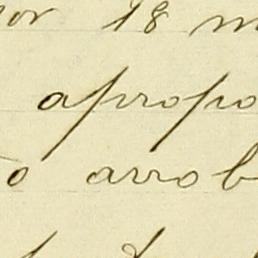 por 18 m
apropo
to arrob